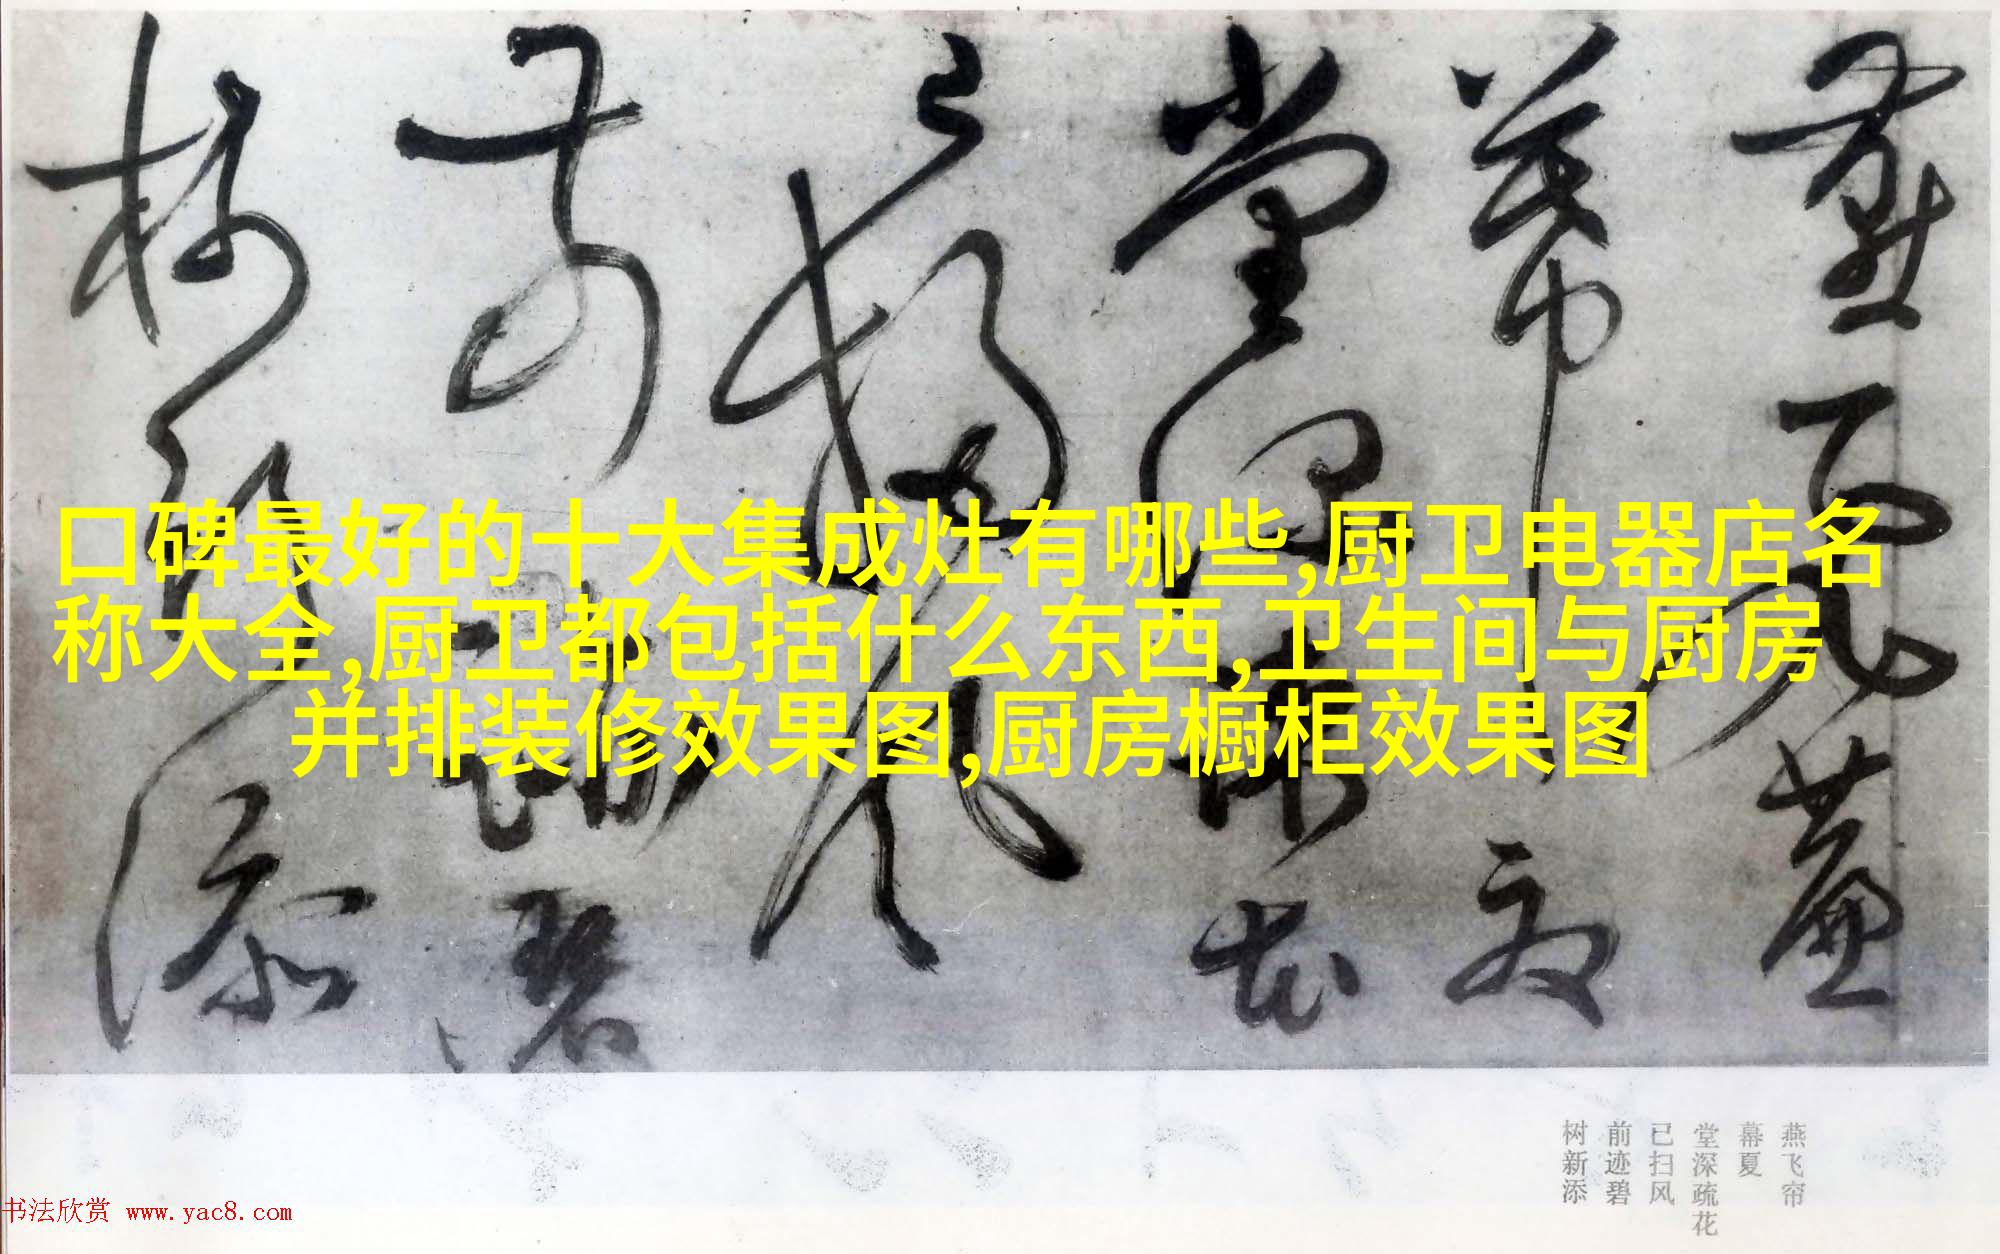 燕飛簾
幕夏
堂深疎花
已掃風
前跡碧
樹新添
口碑最好的十大集成灶有哪些,厨卫电器店名
称大全,厨卫都包括什么东西,卫生间与厨房
并排装修效果图,厨房橱柜效果图
燕飞帘
幕夏
堂深疏花
已扫风
前迹碧
树新添
书法欣赏 www.yac8.com